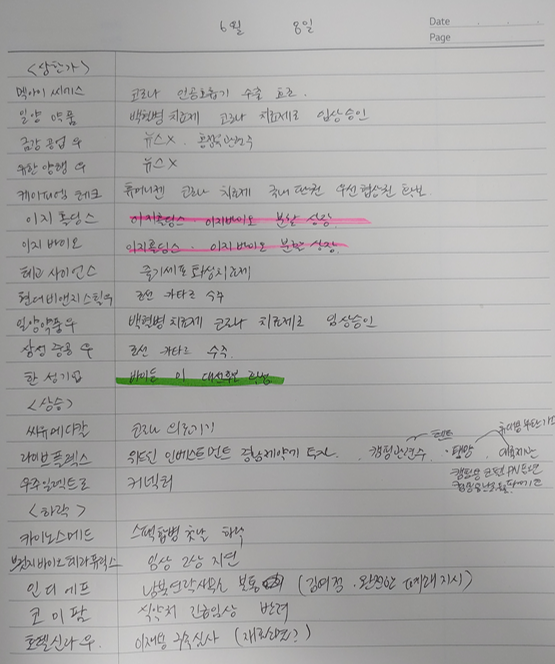 6월 8일
Date . . .
Page
<상한가>
멕아이씨에스 코로나 인공호흡기 수출
일양 약품 백혈병 치료제 코로나 치료제로 임상승인
금강 공업 우 뉴스X.
유한 양행 우 뉴스X
케이피엠 테크 휴머니젠 코로나 치료제 국내 판권 우선협상권 확보
이지 홀딩스 이지홀딩스 · 이지바이오 분할 상장.
이지 바이오 이지홀딩스 · 이지바이오 분할 상장.
테고 사이언스 줄기세포 화상치료제
현대비앤지스틸우 조선 카타르 수주
일양약품우 백혈병 치료제 코로나 치료제로 임상승인
삼성 중공 우 조선 카타르 수주.
한성기업 바이든 미 대선후보 확정.
<상승>
씨유메디칼 코로나 의료기기
라이브플렉스 위드윈 인베스트먼트 경남제약에 투자. 캠핑관련주 텐트
우주일렉트로 커넥터
<하락>
카이노스메드 스팩합병 첫날 하락
브릿지바이오테라퓨틱스 임상 2상 지연
인디에프 남북연락사무소 (김여정 · 지시)
코미팜 식약처 긴급임상 반려
호텔신라 우. 이재용 구속심사